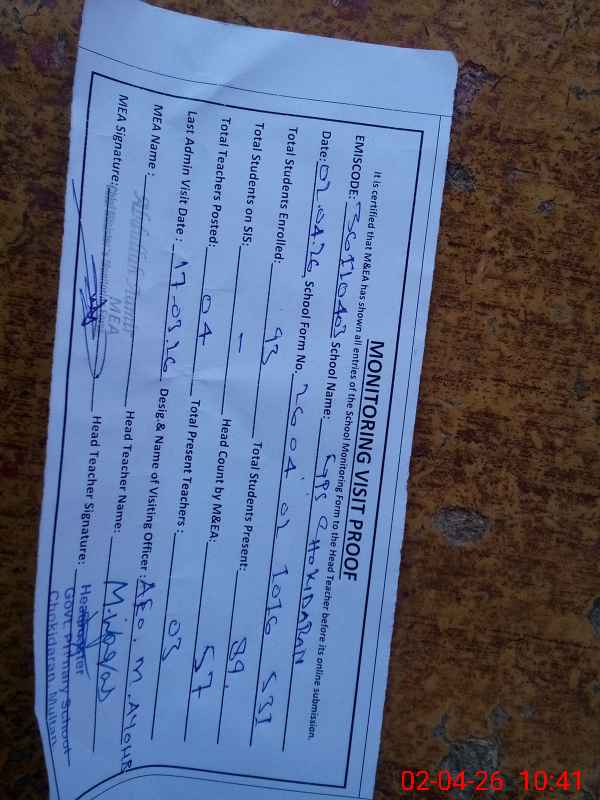 MONITORING VISIT PROOF
It is certified that M&EA has shown all entries of the School Monitoring Form to the Head Teacher before its online submission.
EMISCODE: 36110403 School Name: GPS CHOKIDARAN
Date: 02.04.26 School Form No. 2604021016533
Total Students Enrolled: 93 Total Students Present: 89
Total Students on SIS: – Head Count by M&EA: 57
Total Teachers Posted: 04 Total Present Teachers: 03
Last Admin Visit Date: 17.03.26 Desig.& Name of Visiting Officer: AEO. M. AYOUB
MEA Name: Head Teacher Name: M.
MEA
MEA Signature: Head Teacher Signature:
Govt Primary School
Chokidaran Multan
02-04-26 10:41